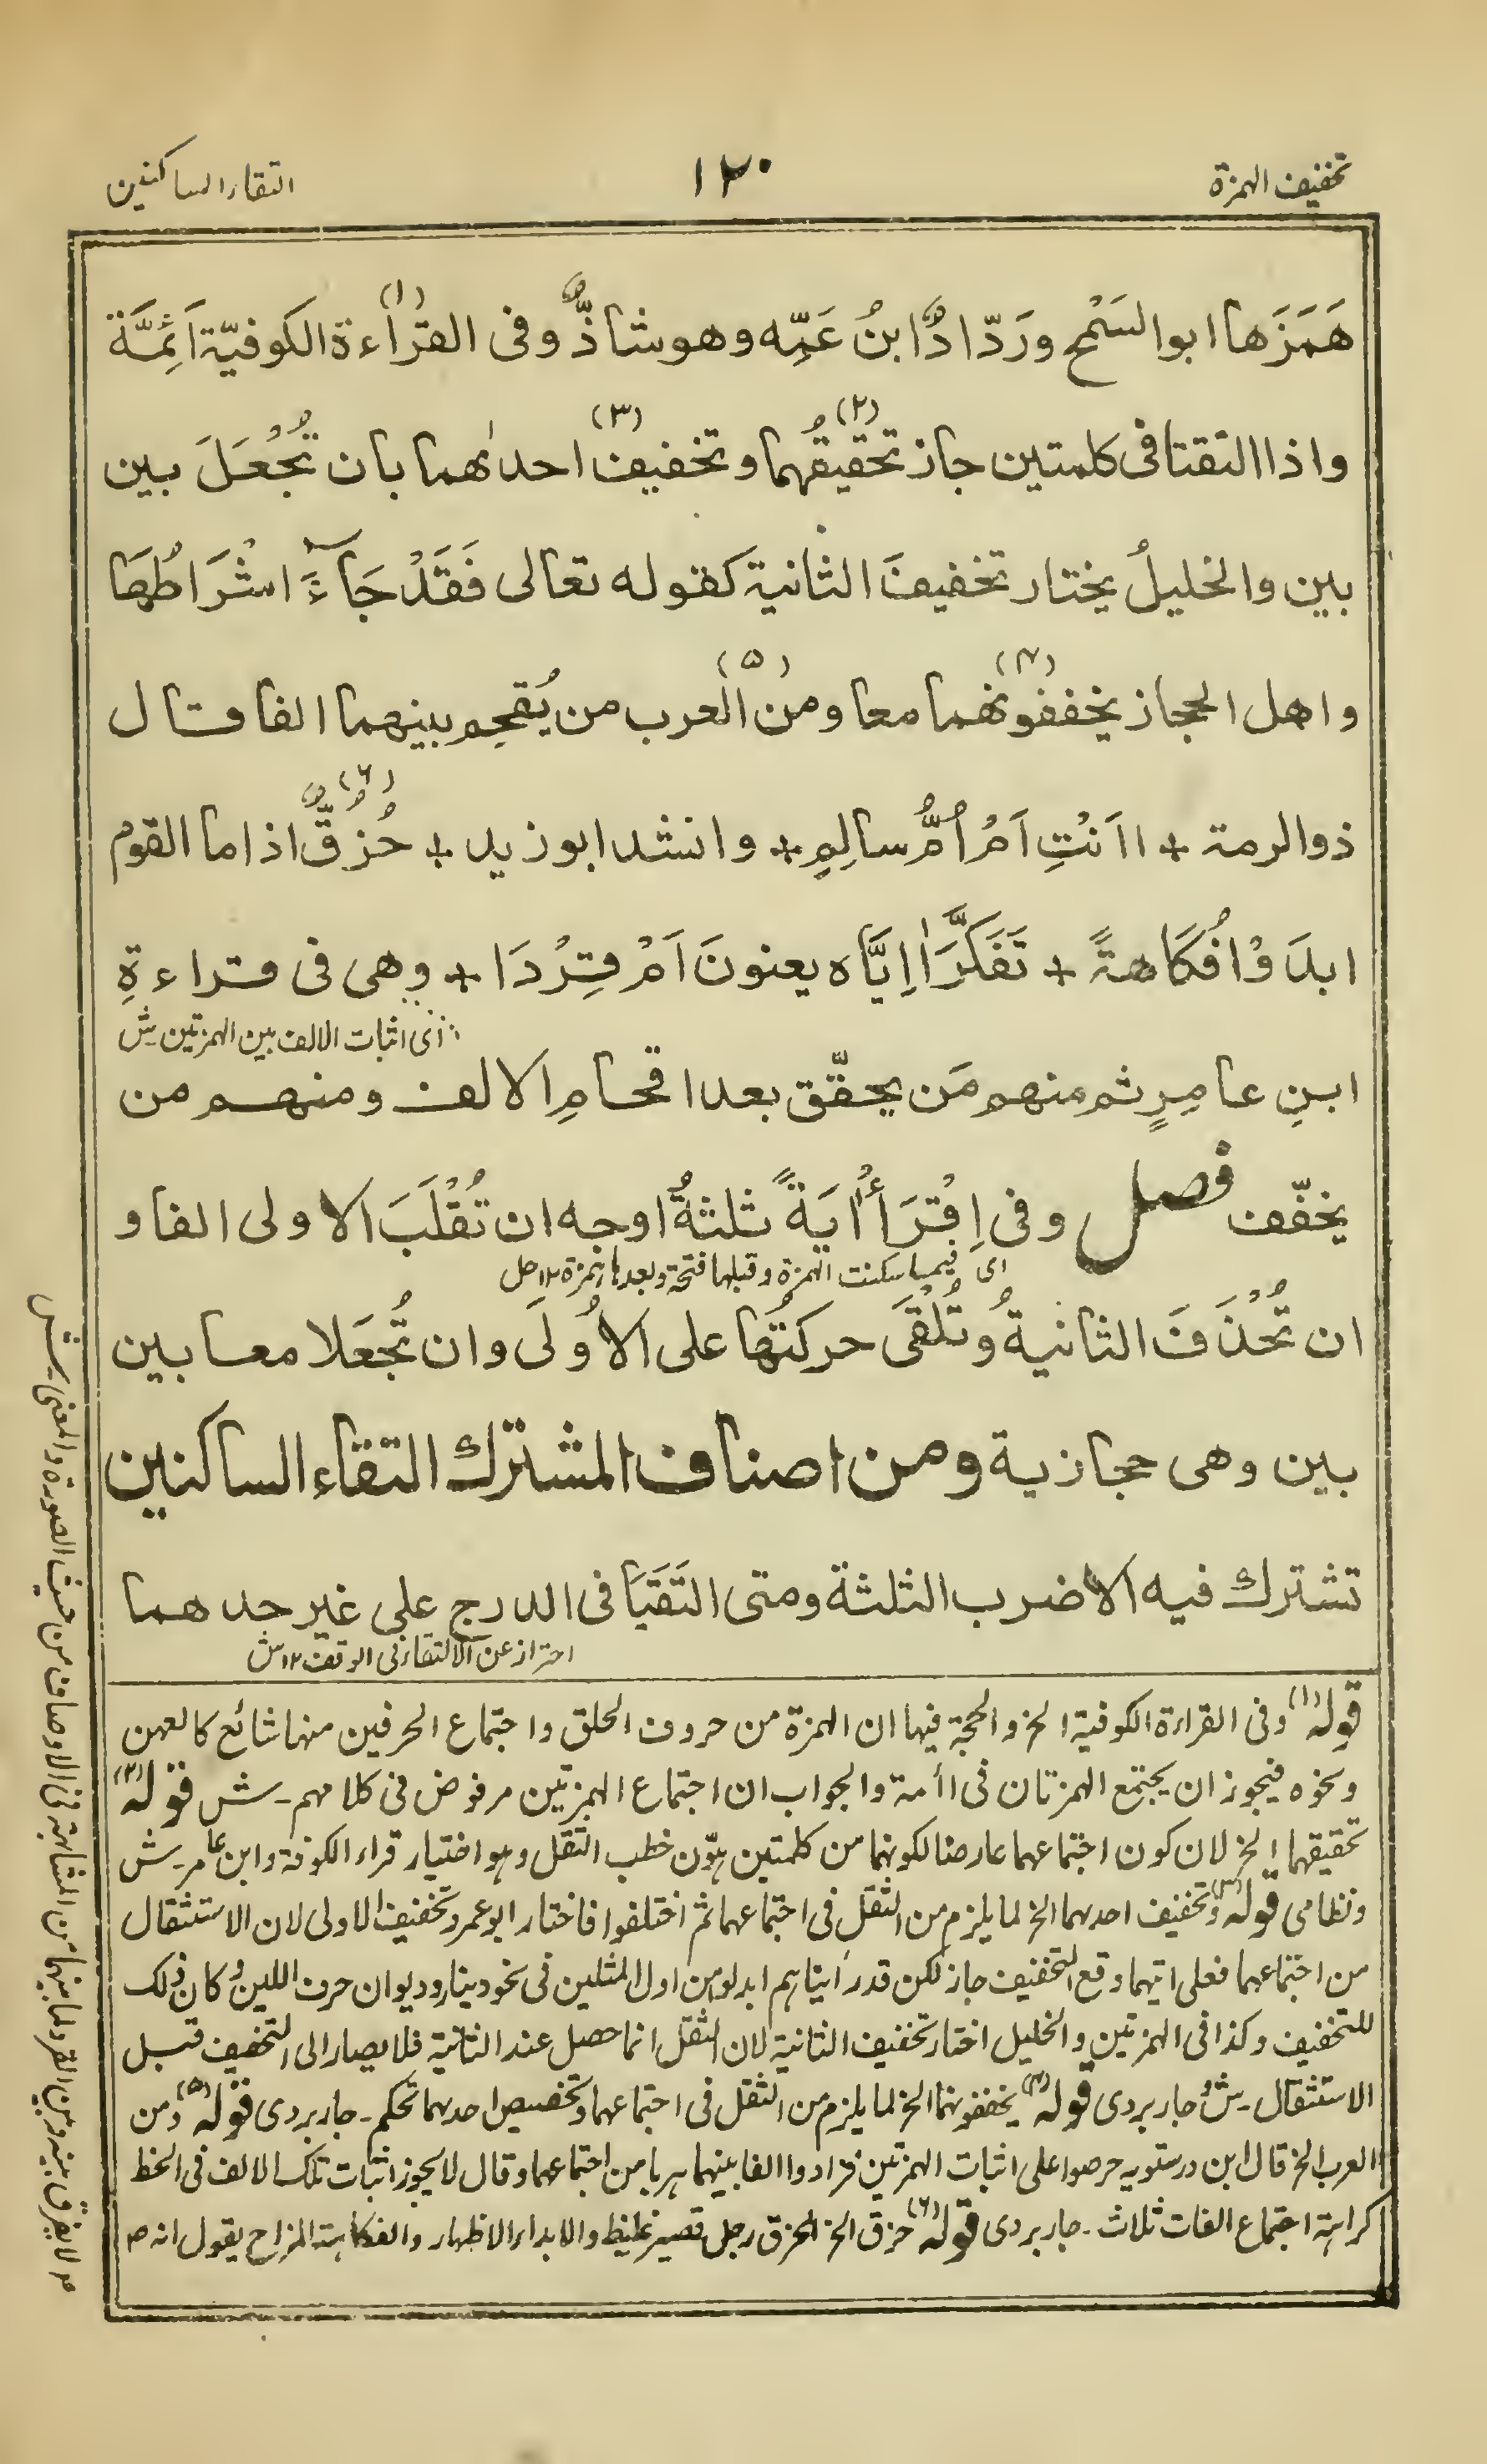 تخفيف الهمزة
١٢٠
التقاء الساكنين
هَمَزَها ابوالسَمْح ورَدّادٌ ابنُ عَمِّه وهو شاذٌّ وفى القراءة (١) الكوفيّة اَئِمَّة
واذا التقتا فى كلمتين جاز تحقيقُهما (٢) وتخفيف (٣) احدٰهما بان تُجْعَلَ بين
بين والخليلُ يختار تخفيفَ الثانية كقوله تعالى فَقَدْ جَآءَ اشْرَاطُهَا
واهل الحجاز يخففونهما (٤) معا ومن (٥) العرب من يُقحِم بينهما الفا قال
ذوالرمة + ااَنْتِ اَمْ اُمُّ سالِمٍ + وانشد ابوزيد + حُزُقٌّ (٦) اذا ما القوم
ابدَوْا فُكَاهةً + تَفَكَّرَ اٰاِيَّاه يعنونَ اَمْ قِرْدَا + وهى فى قراءةِ
اى اثبات الالف بين الهمزتين ش
ابنِ عامِرٍ ثم منهم مَن يحقّق بعد اقحامِ الالف ومنهم من
يخفّف فصل وفى اِقْرَأْ اٰيَةً ثلثةُ اوجه ان تُقْلَبَ الاولى الفا و
اى فيما سكنت الهمزة وقبلها فتحة وبعدها همزة ١٢ حل
ان تُحْذَفَ الثانيةُ وتُلْقَى حركتُها على الاُولَى وان تُجْعَلا معا بين
بين وهى حجازية ومن اصناف المشترك التقاء الساكنين
تشترك فيه الاضرب الثلثة ومتى التَقَيَا فى الدرج على غير حدهما
احتراز عن الالتقاء فى الوقف ١٢ ش
قوله (١) وفى القراءة الكوفية الخ والحجة فيها ان الهمزة من حروف الحلق واجتماع الحرفين منها شائع كالعهن
ونحوه فيجوز ان يجتمع الهمزتان فى اأمة والجواب ان اجتماع الهمزتين مرفوض فى كلامهم ـ ش قوله (٢)
تحقيقهما الخ لان كون اجتماعهما عارضا لكونهما من كلمتين هوّن خطب الثقل وهو اختيار قراء الكوفة وابن عامر ـ ش
ونظامى قوله (٣) وتخفيف احدهما الخ لما يلزم من الثقل فى اجتماعهما ثم اختلفوا فاختار ابوعمرو تخفيف الاولى لان الاستثقال
من اجتماعهما فعلى ايتهما وقع التخفيف جاز لكن قد رأيناهم ابدلوا من اول المثلين فى نحو دينار وديوان حرف اللين وكان ذلك
للتخفيف وكذا فى الهمزتين والخليل اختار تخفيف الثانية لان الثقل انما حصل عند الثانية فلا يصار الى التخفيف قبل
الاستثقال ـ ش وجاربردى قوله (٤) يخففونهما الخ لما يلزم من الثقل فى اجتماعهما وتخصيص احدهما تحكم ـ جاربردى قوله (٥) ومن
العرب الخ قال ابن درستويه حرصوا على اثبات الهمزتين فزادوا الفا بينهما هربا من اجتماعهما وقال لا يجوز اثبات تلك الالف فى الخط
كراهة اجتماع الفات ثلاث ـ جاربردى قوله (٦) حزق الخ الحزق رجل قصير غليظ والابداء الاظهار والفكاهة المزاح يقول انه ص